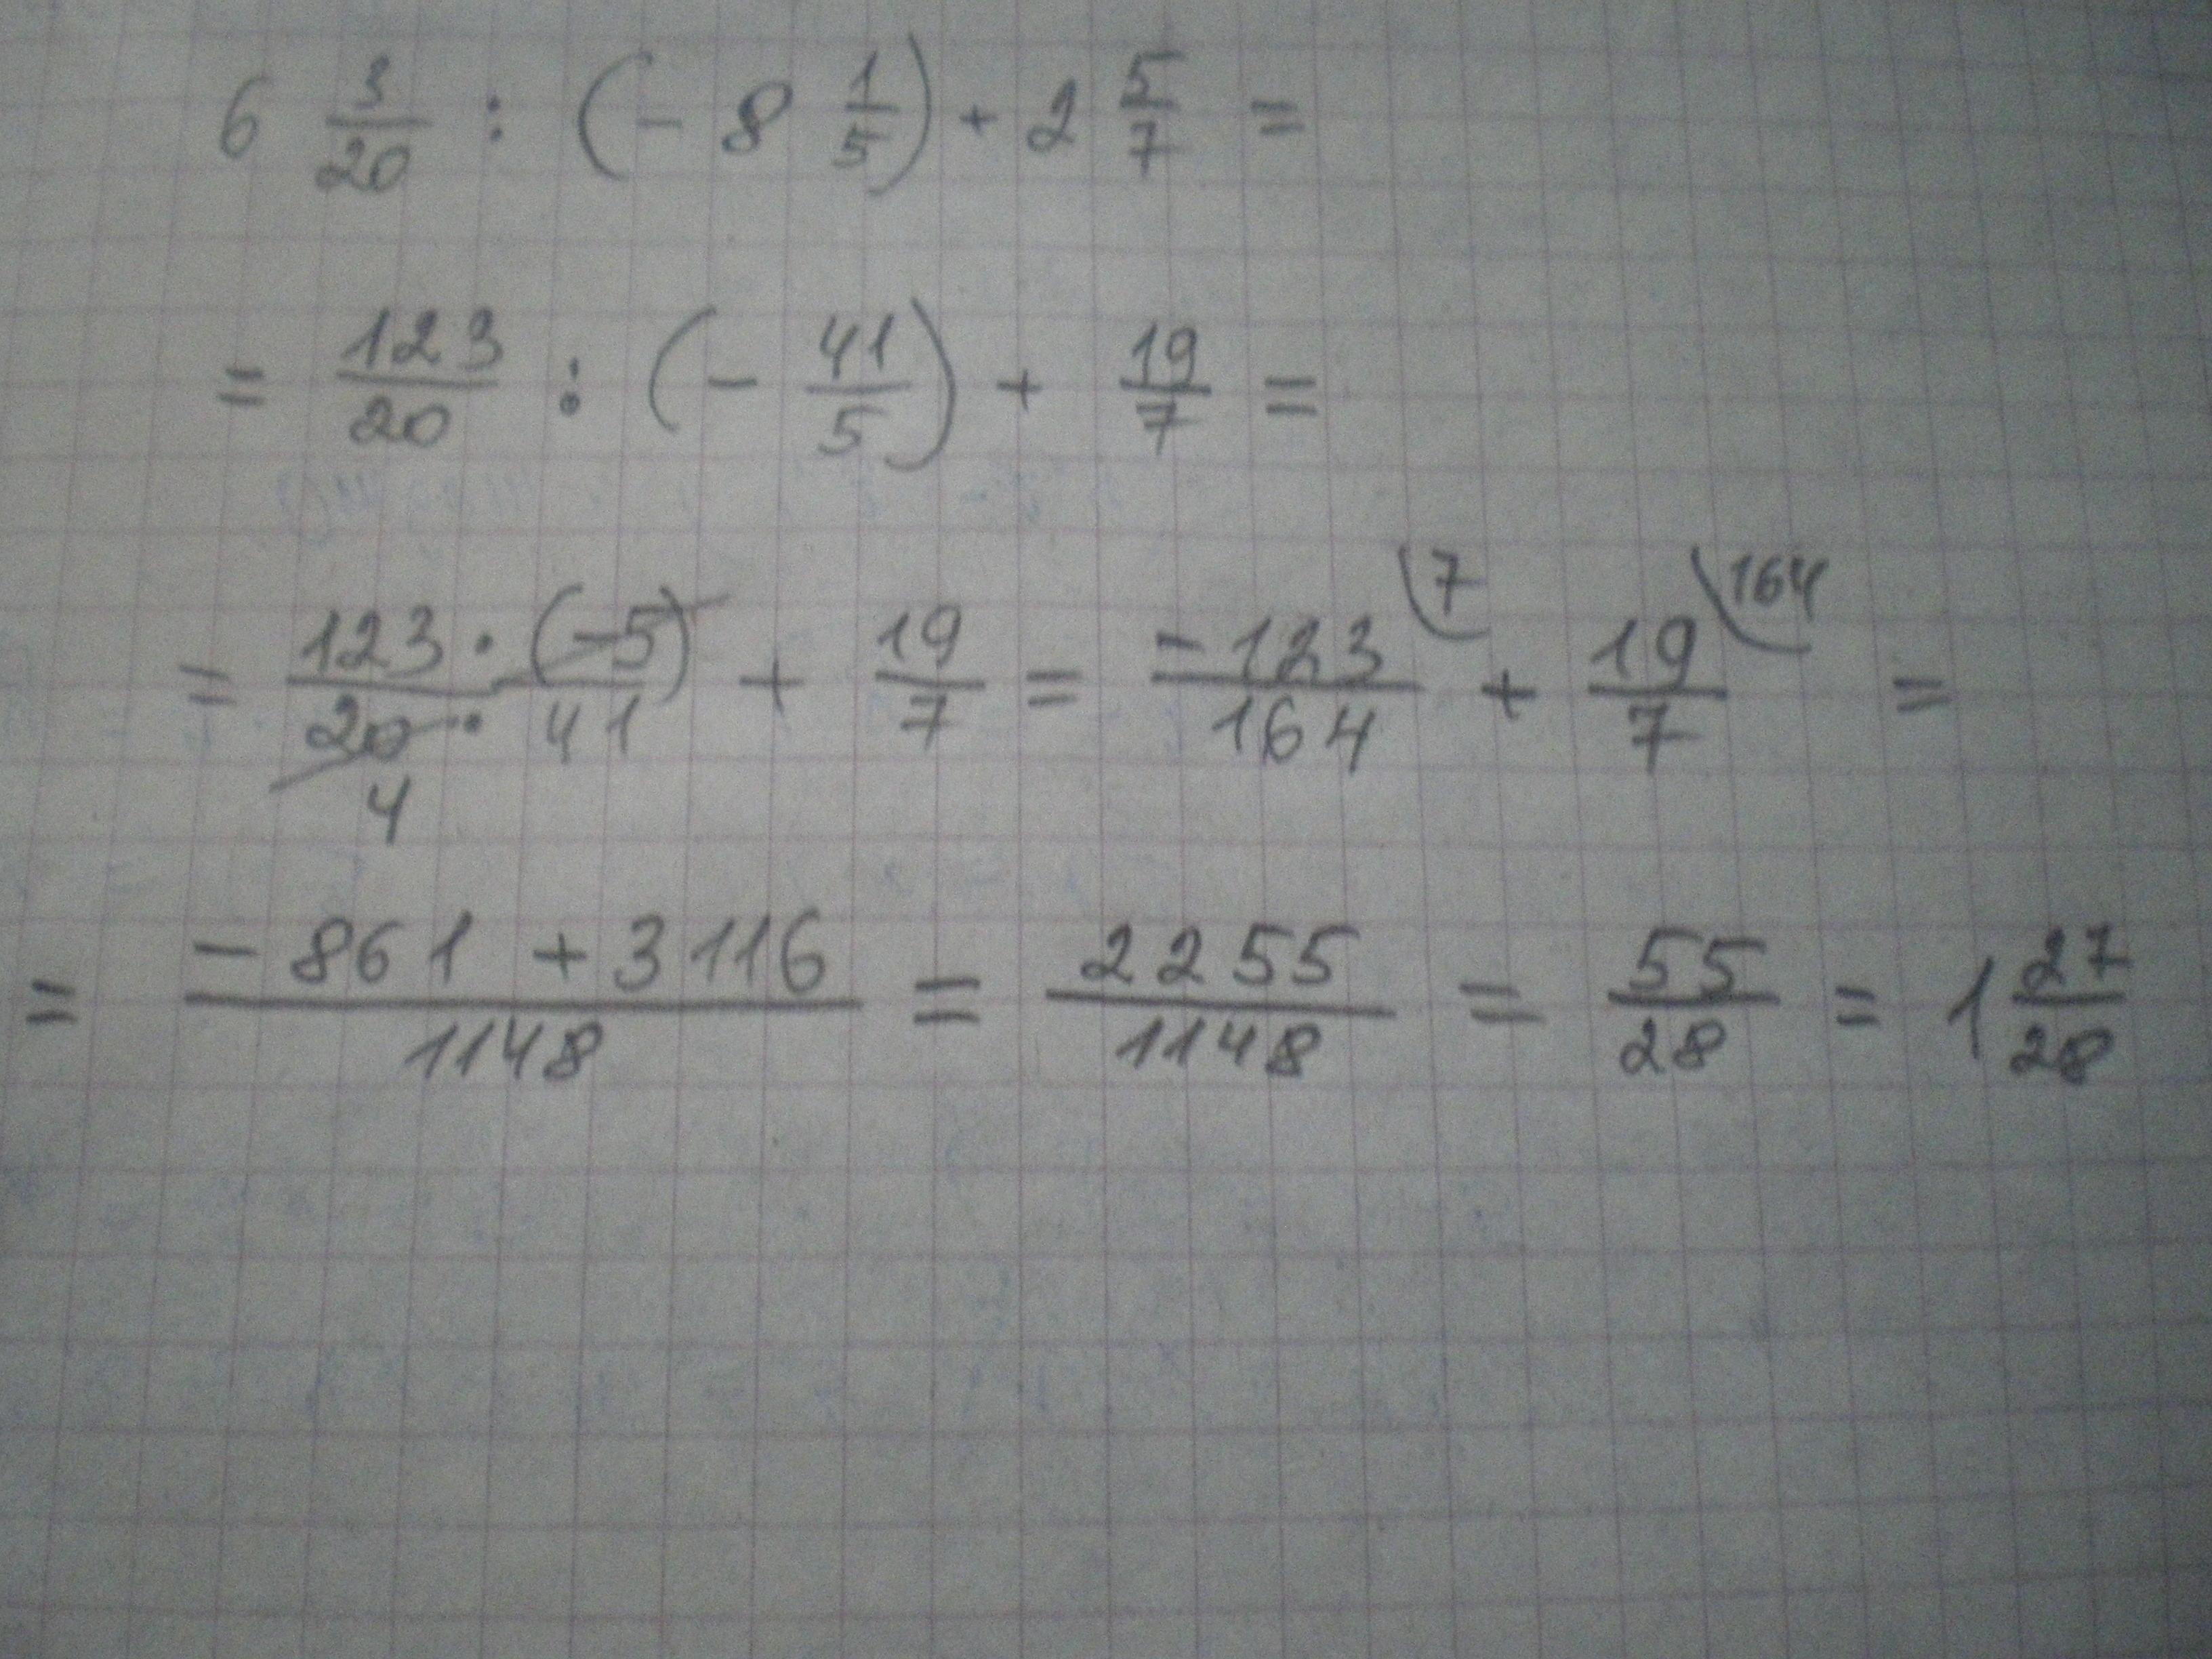 6 3/20 : (- 8 1/5) + 2 5/7 =
= 123/20 : (- 41/5) + 19/7 =
= 123 · (-5)/20 · 41 + 19/7 = -123/164 \7 + 19/7 \164 =
4
= -861 + 3116/1148 = 2255/1148 = 55/28 = 1 27/28